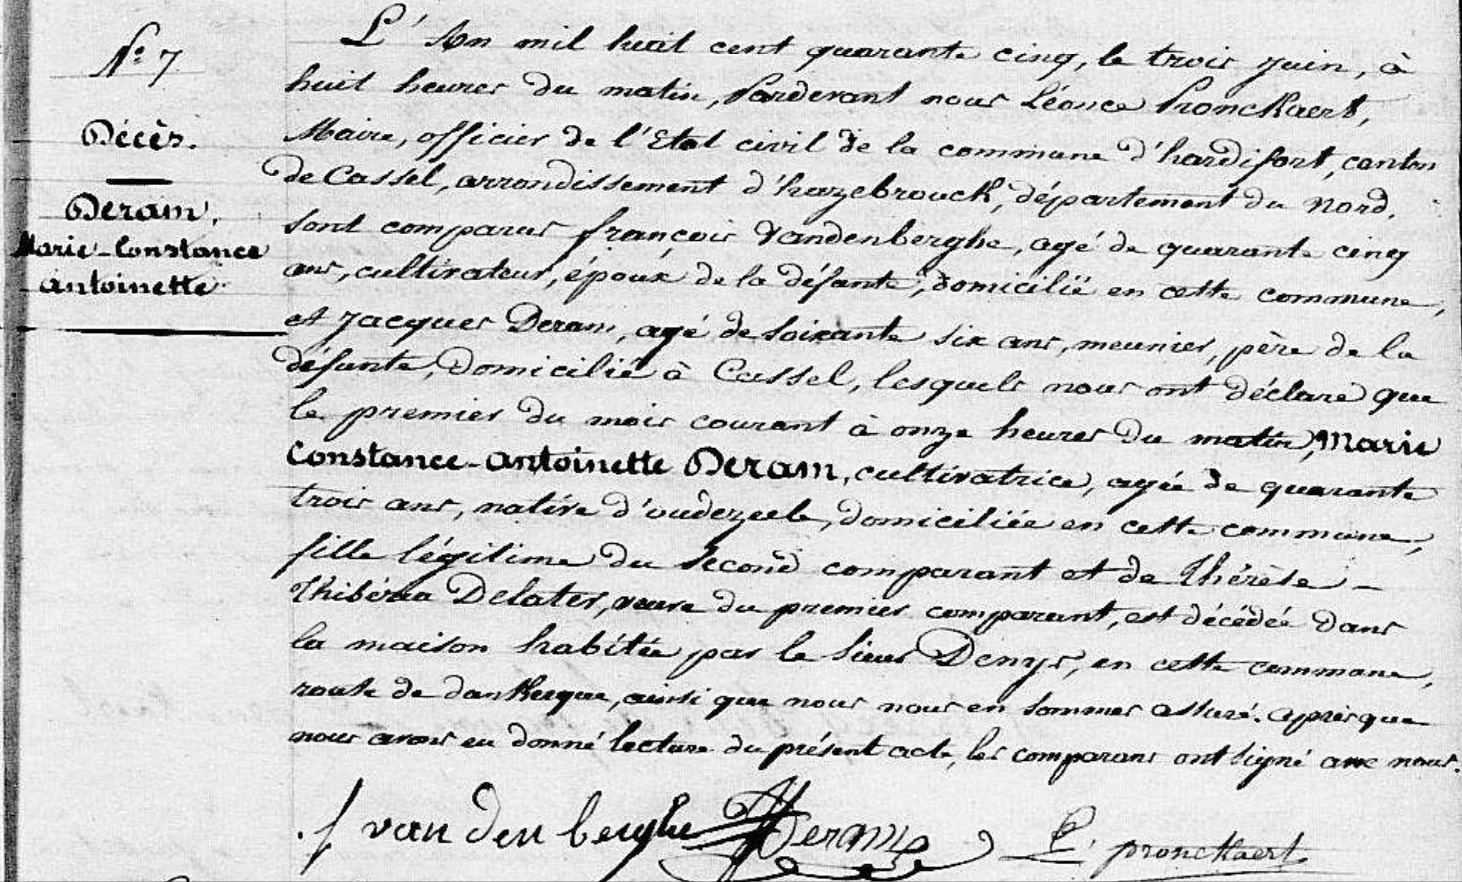 N° 7
Décès.
Deram,
Marie-Constance
Antoinette
L'An mil huit cent quarante cinq, le trois juin, à
huit heures du matin, Pardevant nous Léonce Pronckaert,
Maire, officier de l'Etat civil de la commune d'hardifort, canton
de Cassel, arrondissement d'hazebrouck, département du nord,
sont comparus françois Vandenberghe, agé de quarante cinq
ans, cultivateur, époux de la défunte, domicilié en cette commune,
et Jacques Deram, agé de soixante six ans, meunier, père de la
défunte, domicilié à Cassel, lesquels nous ont déclaré que
le premier du mois courant à onze heures du matin, Marie
Constance-Antoinette Deram, cultivatrice, agée de quarante
trois ans, native d'oudezeele, domiciliée en cette commune,
fille légitime du second comparant et de Thérèse-
Delater, du premier comparant, est décédée dans
la maison habitée par le sieur Denys, en cette commune,
route de dunkerque, ainsi que nous nous en sommes assuré. après que
nous avons eu donné lecture du présent acte, les comparans ont signé avec nous.
f van den berghe Deram L. pronckaert